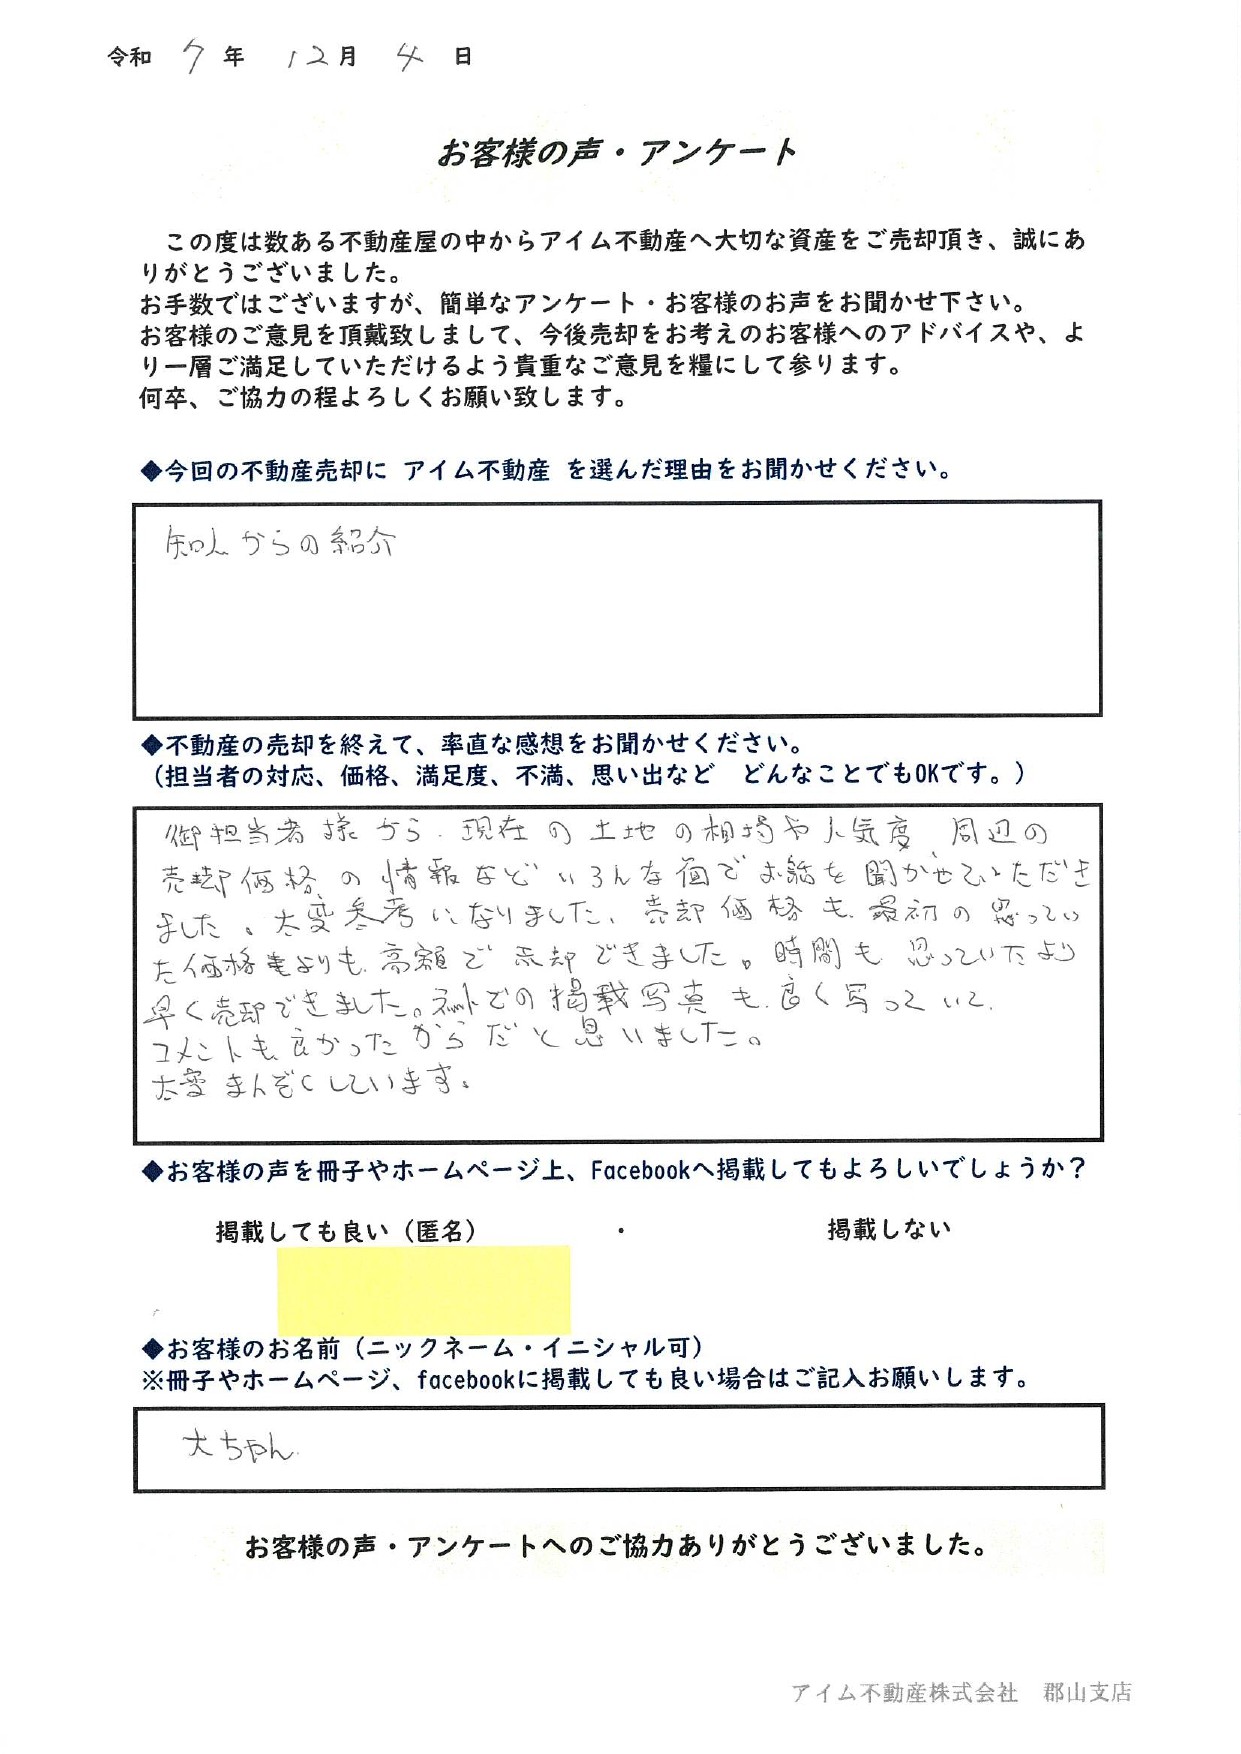 令和 7 年 12 月 4 日
お客様の声・アンケート
この度は数ある不動産屋の中からアイム不動産へ大切な資産をご売却頂き、誠にあ
りがとうございました。
お手数ではございますが、簡単なアンケート・お客様のお声をお聞かせ下さい。
お客様のご意見を頂戴致しまして、今後売却をお考えのお客様へのアドバイスや、よ
り一層ご満足していただけるよう貴重なご意見を糧にして参ります。
何卒、ご協力の程よろしくお願い致します。
◆今回の不動産売却に アイム不動産 を選んだ理由をお聞かせください。
知人からの紹介
◆不動産の売却を終えて、率直な感想をお聞かせください。
（担当者の対応、価格、満足度、不満、思い出など どんなことでもOKです。）
御担当者様から、現在の土地の相場や人気度、周辺の
売却価格の情報などいろんな面でお話を聞かせていただき
ました。大変参考になりました。売却価格も、最初の思ってい
た価格よりも、高額で売却できました。時間も思っていたより
早く売却できました。ネットでの掲載写真も、良く写っていて、
コメントも良かったからだと思いました。
大変まんぞくしています。
◆お客様の声を冊子やホームページ上、Facebookへ掲載してもよろしいでしょうか？
掲載しても良い（匿名） ・ 掲載しない
◆お客様のお名前（ニックネーム・イニシャル可）
※冊子やホームページ、facebookに掲載しても良い場合はご記入お願いします。
大ちゃん
お客様の声・アンケートへのご協力ありがとうございました。
アイム不動産株式会社 郡山支店